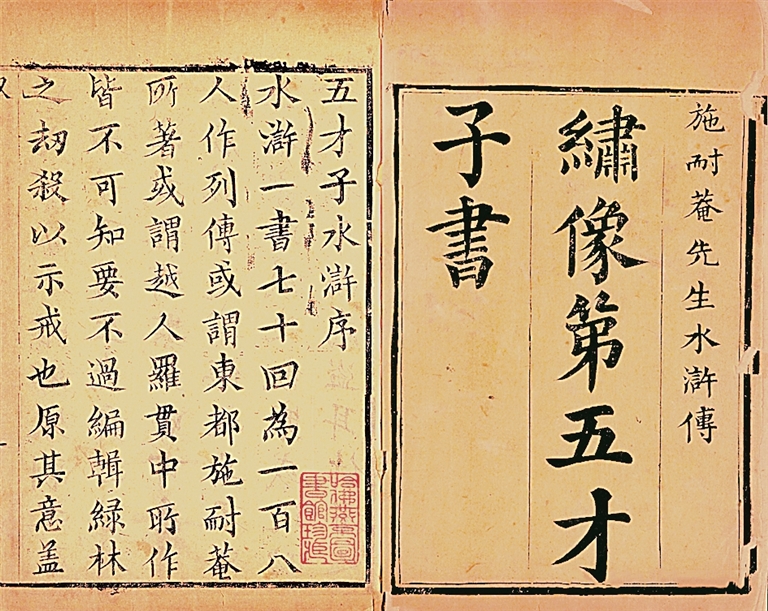 施耐菴先生水滸傳
繡像第五才
子書
五才子水滸序
水滸一書七十回為一百八
人作列傳或謂東都施耐菴
所著或謂越人羅貫中所作
皆不可知要不過編輯綠林
之刼殺以示戒也原其意盖